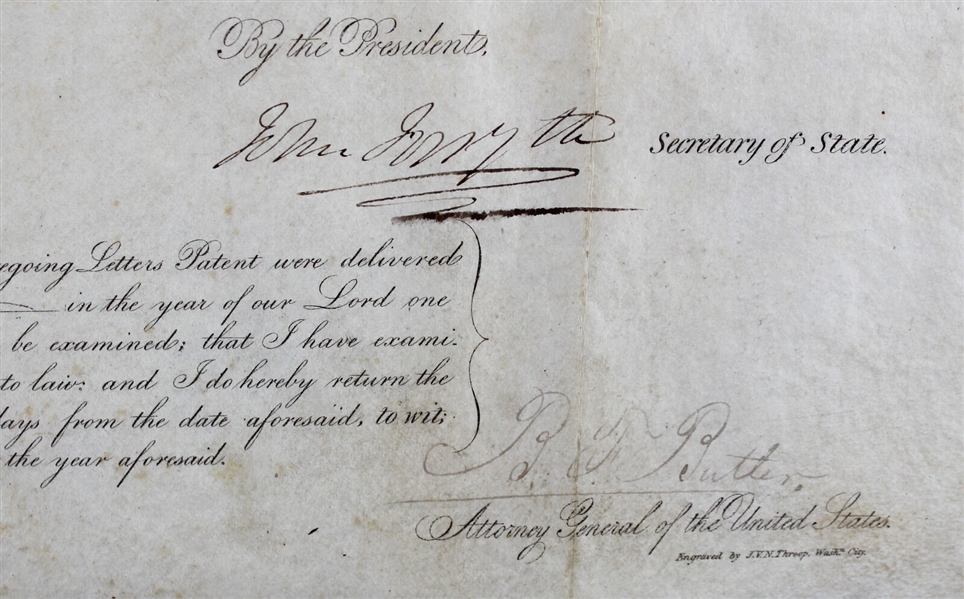 By the President,
John Forsyth Secretary of State.
egoing Letters Patent were delivered
in the year of our Lord one
be examined; that I have exami-
to law: and I do hereby return the
days from the date aforesaid, to wit:
the year aforesaid.
B. F. Butler,
Attorney General of the United States.
Engraved by J.V.N. Throop, Washn. City.